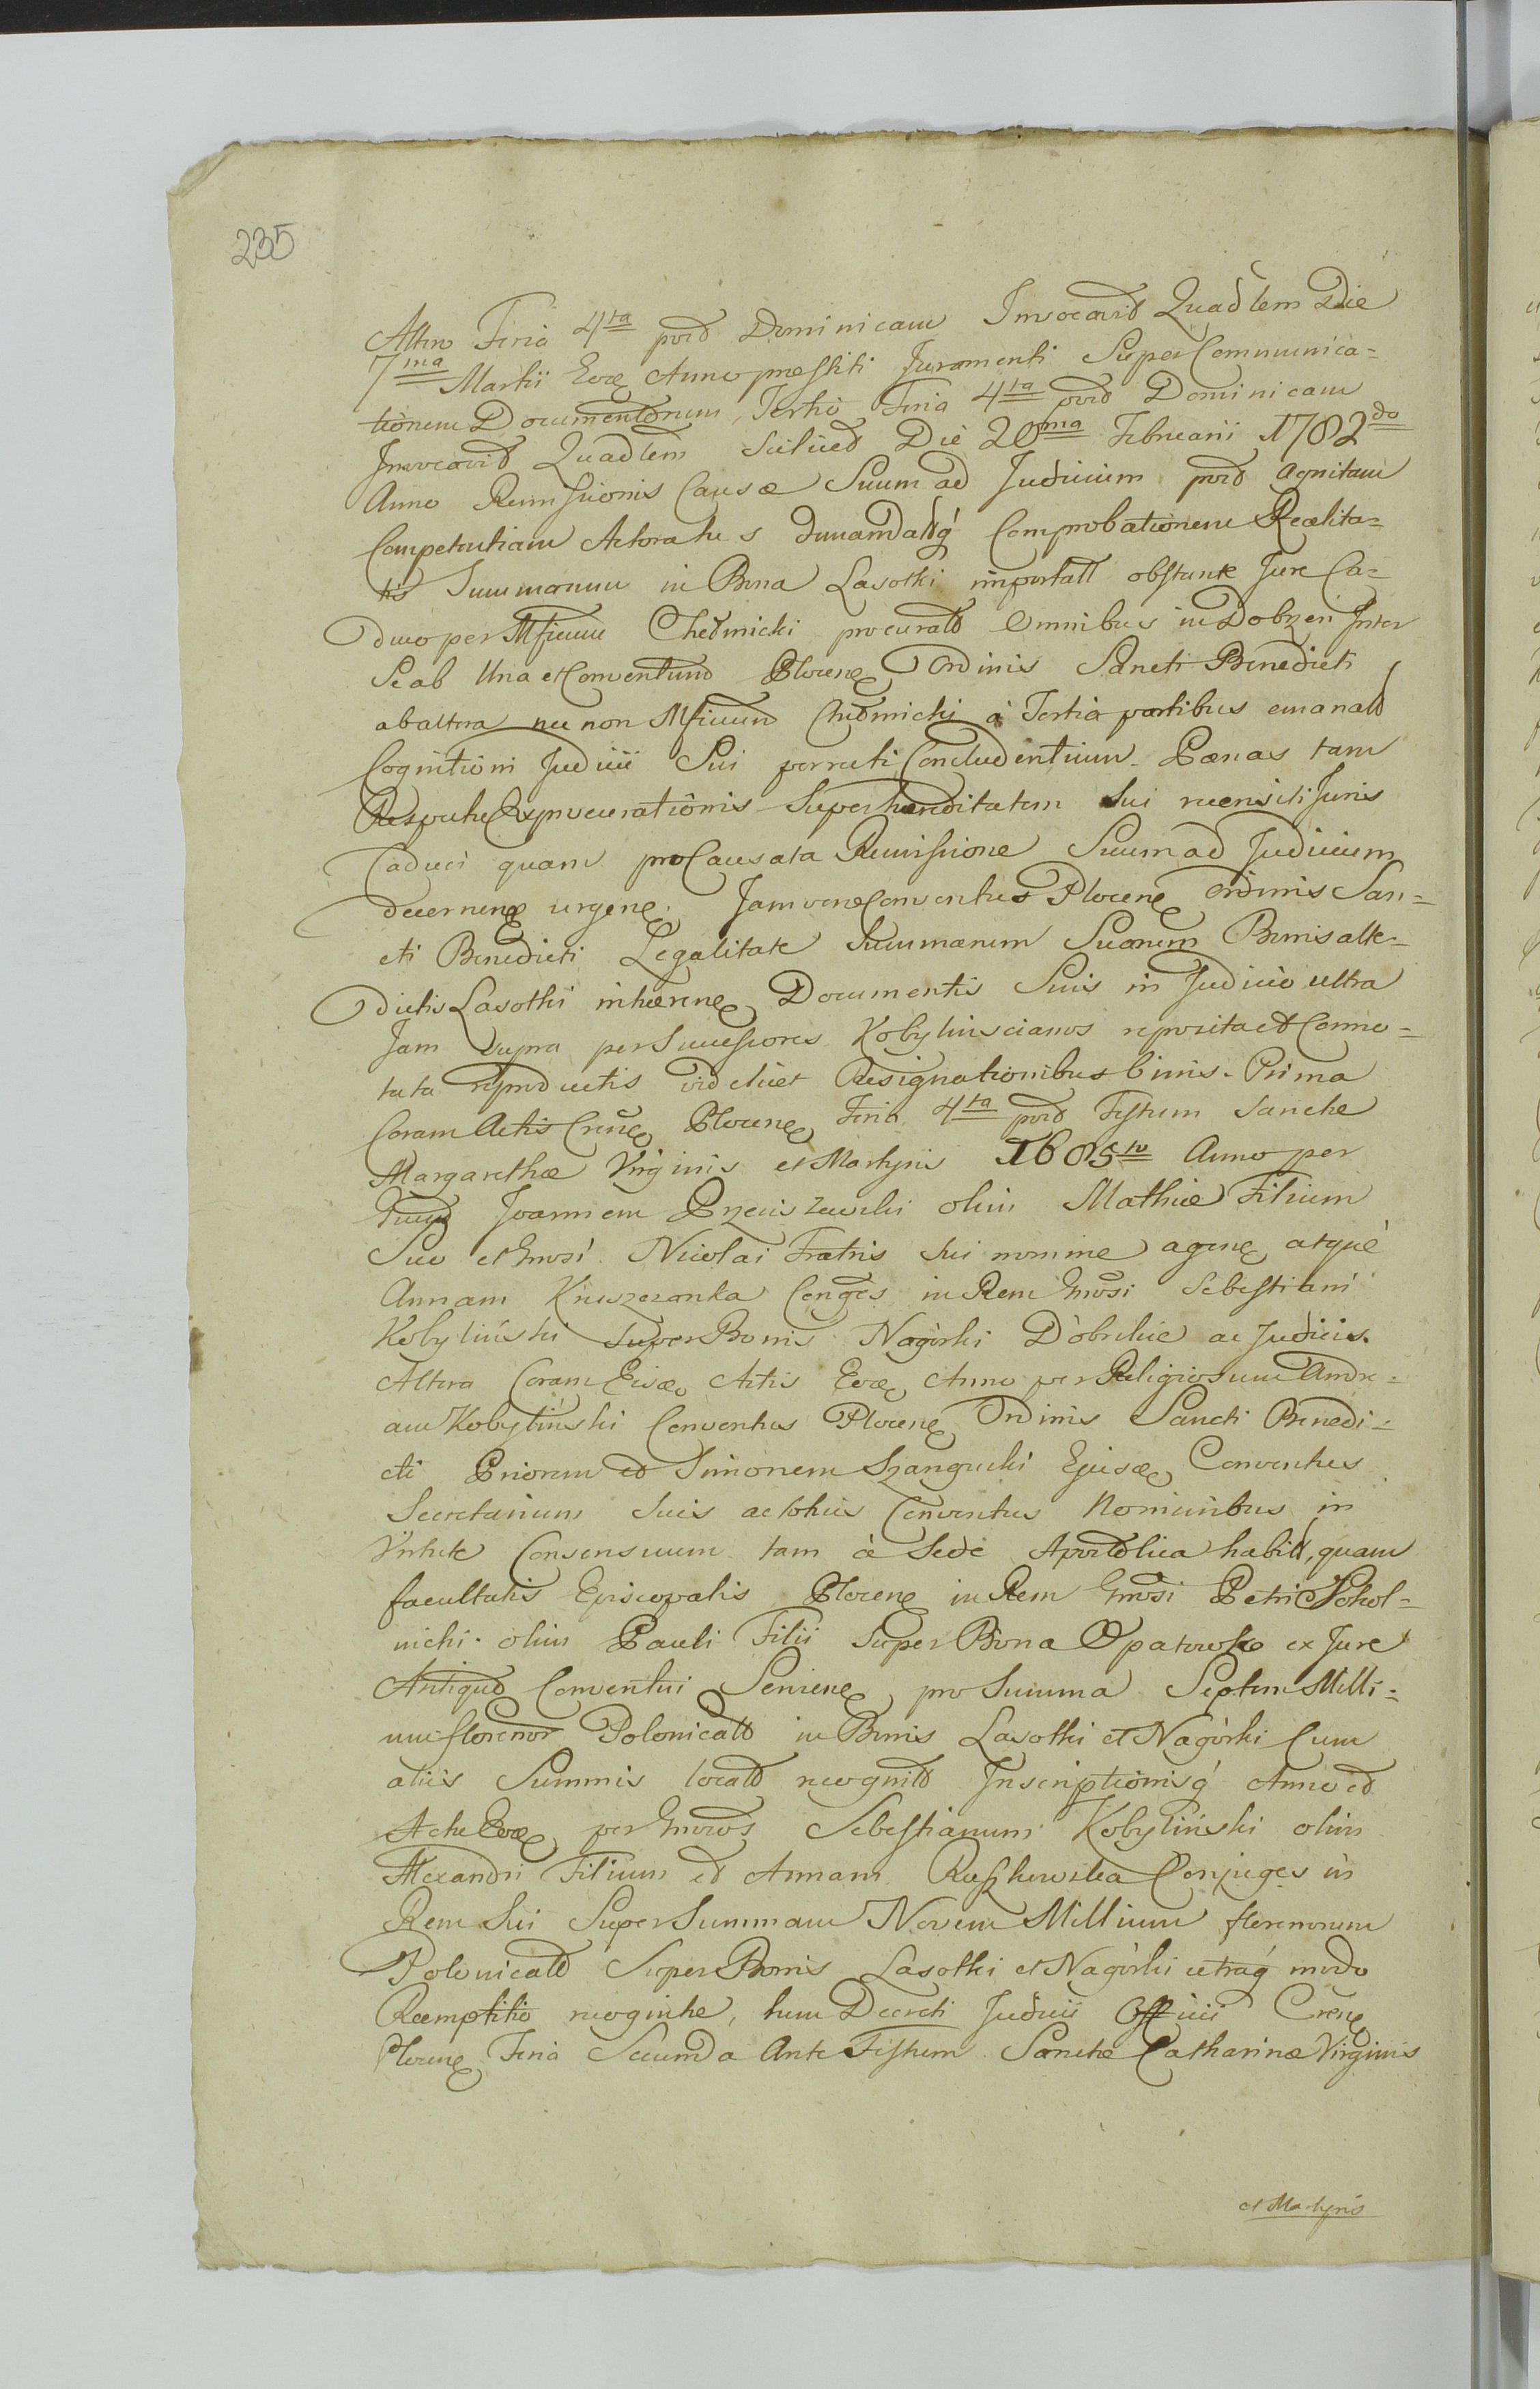 235
Altero Feria 4ta post Dominicam Invocavit Quadlem Die
7ma Martii Eode Anno præstiti Juramenti Super Communica=
tionem Documentorum, Tertio Feria 4ta post Dominicam
Invocavit Quadlem Scilicet Die 20ma Februarii 1782do
Anno Remissionis Causæ Suum ad Judicium post agnitam
Competentiam Actoratus demandatq Comprobationem Realita=
tis Summarum in Bona Lasotki importatt obstante Jure Ca=
duco per Mficum Chełmicki procurato Omnibus in Dobrzen Inter
Se ab Una et Conventum Plocene Ordinis Sancti Benedicti
ab altera nec non Mficum Chełmicki à Tertia partibus emanato
Cognitioni Judicii Sui Concludentium. Pænas tam
Respectu Exprocurationis Super hæreditatem Sui recensiti Juris
Caduci quam pro Causata Remissione Suum ad Judicium
decernene urgene. Jam vero Conventus Plocene Ordinis San=
cti Benedicti Legalitate Summarum Suarum Bonis atte=
dictis Lasotki inhærene Documentis Suis in Judicio ultra
Jam supra per Successores Kobylinscianos reposita et Conno=
tata reproductis videlicet Resignationibus binis. Prima
Coram Actis Crene Plocene Feria 4ta post Festum Sanctæ
Margarethæ Virginis et Martyris 1685to Anno per
Joannem Przeciszewski olim Mathiæ Filium
Suo et Gnosi Nicolai Fratris Sui nomine agene atque
Annam Conges in Rem Gnosi Sebestiani
Kobyliński Super Bonis Nagórki Dobrskie ac Judicis.
Altera Coram Eisde Actis Eode Anno per Religiosum Andre=
am Kobyliński Conventus Plocene Ordinis Sancti Benedi=
cti Priorem et Simonem Ejusde Conventus
Secretarium Suis ac totius Conventus Nominibus in
Virtute Consensuum tam à Sede Apostolica habitt, quam
facultatis Episcopalis Plocene in Rem Gnosi Petri Sokol=
nicki olim Pauli Filii Super Bona Opatowko ex Jure
Antiquo Conventui Serviene, pro Summa Septem Milli=
um florenor Polonicalo in Bonis Lasotki et Nagórki Cum
aliis Summis locato recognito Inscriptionisq Anno et
Actu Eode per Gnosos Sebestianum Kobyliński olim
Alexandri Filium et Annam Ruszkowska Conjuges in
Rem Sui Super Summam Novem Millium florenorum
Polonicalo Super Bonis Lasotki et Nagórki utraq modo
Reemptitio recognitæ, tum Decreti Judicii Officii Crene
Plocene Feria Secunda Ante Festum Sanctæ Catharinæ Virginis
et Martyris